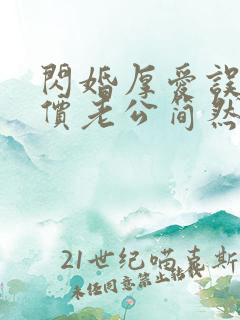 閃婚厚愛誤
價老公簡然
21世纪喵喜斯
未经同意禁止转载